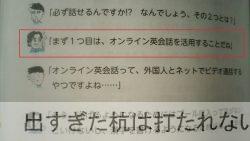 「必ず話せるんですか!? なんでしょう、その2つとは?」
「まず1つ目は、オンライン英会話を活用することだね」
「オンライン英会話って、外国人とネットでビデオ通話する
やつですよね……」
出すぎた杭は打たれない